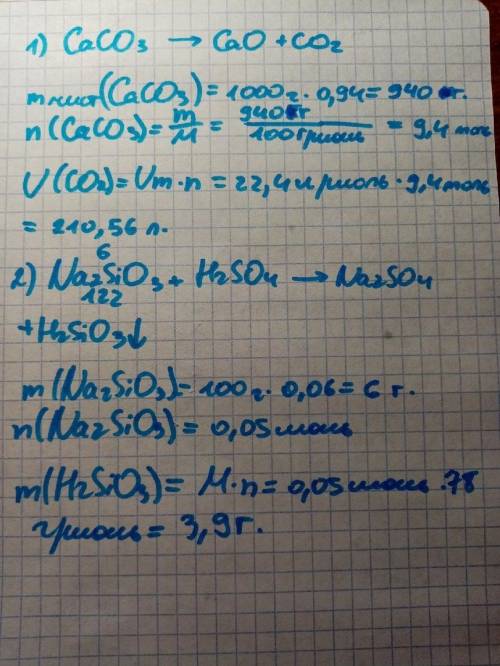 1) CaCO3 → CaO + CO2
m чист (CaCO3) = 1000г · 0,94 = 940 г.
n (CaCO3) = m/M = 940 г/100 г/моль = 9,4 моль
V (CO2) = Vm · n = 22,4 л/моль · 9,4 моль
= 210,56 л.
6
2) Na2SiO3 + H2SO4 → Na2SO4
122
+ H2SiO3↓
m (Na2SiO3) = 100г · 0,06 = 6 г.
n (Na2SiO3) = 0,05 моль
m (H2SiO3) = M · n = 0,05 моль · 78
г/моль = 3,9 г.